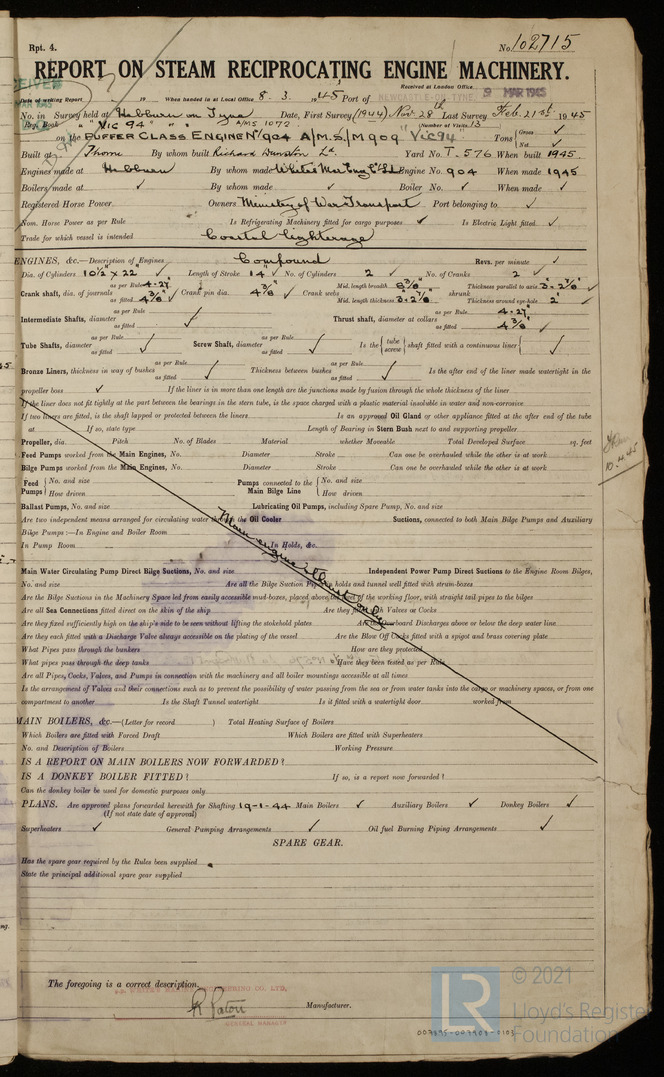 Rpt. 4.
No. 102715
REPORT ON STEAM RECIPROCATING ENGINE MACHINERY.
Received at London Office 9 MAR 1945
Date of writing Report 19 When handed in at Local Office 8. 3. 1945 Port of NEWCASTLE-ON-TYNE
No. in Survey held at Hebburn on Tyne Date, First Survey (1944) Nov 28th Last Survey Feb. 21st 1945
Reg. Book " VIC 94 " A/MS 1072 (Number of Visits 13)
on the PUFFER CLASS ENGINE No 904 A/M.S./M909 "VIC 94" Tons { Gross Net
Built at Thorne By whom built Richard Dunston Ld. Yard No. T. 576 When built 1945
Engines made at Hebburn By whom made White's Mar. Eng. Co Ld Engine No. 904 When made 1945
Boilers made at ✓ By whom made ✓ Boiler No. ✓ When made ✓
Registered Horse Power Owners Ministry of War Transport Port belonging to ✓
Nom. Horse Power as per Rule Is Refrigerating Machinery fitted for cargo purposes ✓ Is Electric Light fitted ✓
Trade for which vessel is intended Coastal Lighterage
ENGINES, &c.—Description of Engines Compound Revs. per minute ✓
Dia. of Cylinders 10½ × 22" ✓ Length of Stroke 14" ✓ No. of Cylinders 2 ✓ No. of Cranks 2 ✓
Crank shaft, dia. of journals as per Rule 4.27" as fitted 4⅜" ✓ Crank pin dia. 4⅜" ✓ Crank webs Mid. length breadth Mid. length thickness shrunk Thickness parallel to axis Thickness around eye-hole 2"
Intermediate Shafts, diameter as per Rule as fitted ✓ Thrust shaft, diameter at collars as per Rule 4.27" as fitted 4⅜" ✓
Tube Shafts, diameter as per Rule as fitted ✓ Screw Shaft, diameter as per Rule as fitted ✓ Is the { tube screw } shaft fitted with a continuous liner { ✓
Bronze Liners, thickness in way of bushes as per Rule as fitted ✓ Thickness between bushes as per Rule as fitted ✓ Is the after end of the liner made watertight in the
propeller boss ✓ If the liner is in more than one length are the junctions made by fusion through the whole thickness of the liner
If the liner does not fit tightly at the part between the bearings in the stern tube, is the space charged with a plastic material insoluble in water and non-corrosive
If two liners are fitted, is the shaft lapped or protected between the liners Is an approved Oil Gland or other appliance fitted at the after end of the tube
at If so, state type Length of Bearing in Stern Bush next to and supporting propeller
Propeller, dia. Pitch No. of Blades Material whether Moveable Total Developed Surface sq. feet
Feed Pumps worked from the Main Engines, No. Diameter Stroke Can one be overhauled while the other is at work
Bilge Pumps worked from the Main Engines, No. Diameter Stroke Can one be overhauled while the other is at work
Feed Pumps { No. and size How driven Pumps connected to the Main Bilge Line { No. and size How driven
Ballast Pumps, No. and size Lubricating Oil Pumps, including Spare Pump, No. and size
Are two independent means arranged for circulating water through the Oil Cooler Suctions, connected to both Main Bilge Pumps and Auxiliary
Bilge Pumps :—In Engine and Boiler Room
In Pump Room In Holds, &c.
Main engine & thrust only
Main Water Circulating Pump Direct Bilge Suctions, No. and size Independent Power Pump Direct Suctions to the Engine Room Bilges,
No. and size Are all the Bilge Suction Pipes in holds and tunnel well fitted with strum-boxes
Are the Bilge Suctions in the Machinery Space led from easily accessible mud-boxes, placed above the level of the working floor, with straight tail pipes to the bilges
Are all Sea Connections fitted direct on the skin of the ship Are they fitted with Valves or Cocks
Are they fixed sufficiently high on the ship's side to be seen without lifting the stokehold plates Are the Overboard Discharges above or below the deep water line
Are they each fitted with a Discharge Valve always accessible on the plating of the vessel Are the Blow Off Cocks fitted with a spigot and brass covering plate
What Pipes pass through the bunkers How are they protected
What pipes pass through the deep tanks Have they been tested as per Rule
Are all Pipes, Cocks, Valves, and Pumps in connection with the machinery and all boiler mountings accessible at all times
Is the arrangement of Valves and their connections such as to prevent the possibility of water passing from the sea or from water tanks into the cargo or machinery spaces, or from one
compartment to another Is the Shaft Tunnel watertight Is it fitted with a watertight door worked from
MAIN BOILERS, &c.—(Letter for record ) Total Heating Surface of Boilers
Which Boilers are fitted with Forced Draft Which Boilers are fitted with Superheaters
No. and Description of Boilers Working Pressure
IS A REPORT ON MAIN BOILERS NOW FORWARDED?
IS A DONKEY BOILER FITTED? If so, is a report now forwarded?
Can the donkey boiler be used for domestic purposes only
PLANS. Are approved plans forwarded herewith for Shafting 19-1-44 Main Boilers ✓ Auxiliary Boilers ✓ Donkey Boilers ✓
(If not state date of approval)
Superheaters ✓ General Pumping Arrangements ✓ Oil fuel Burning Piping Arrangements ✓
SPARE GEAR.
Has the spare gear required by the Rules been supplied
State the principal additional spare gear supplied
10.4.45
The foregoing is a correct description,
R Paton Manufacturer.
GENERAL MANAGER
LR © 2021
Lloyd's Register
Foundation